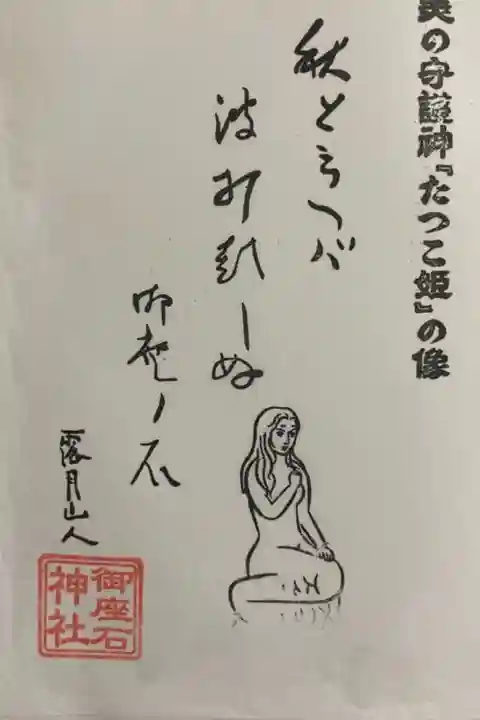 美の守護神『たつこ姫』の像
秋とらへバ
波打
御座ノ石
露月山人
御座石
神社